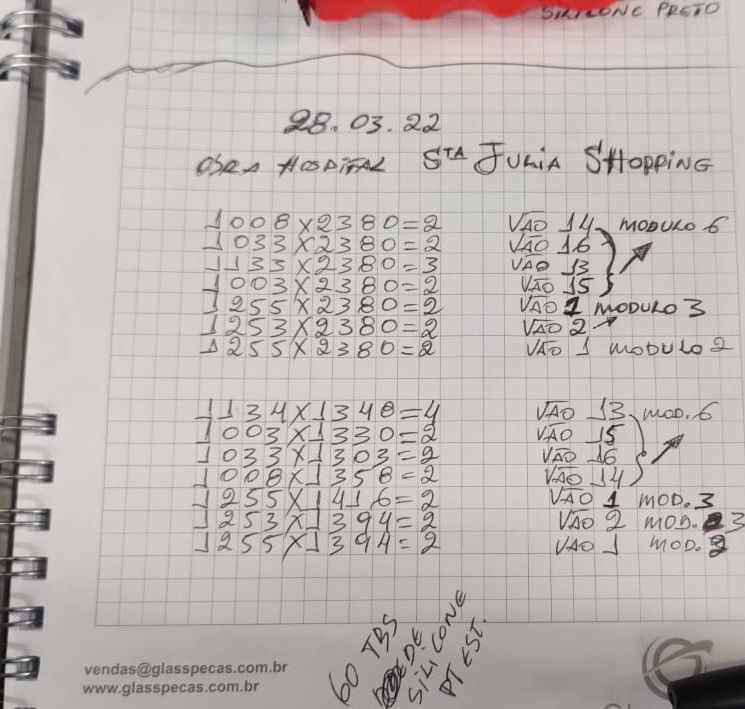 SILICONE PRETO
28.03.22
OBRA HOSPITAL STA JULIA SHOPPING
1008X2380=2 VÃO 14 MODULO 6
1033X2380=2 VÃO 16
1133X2380=3 VÃO 13
1003X2380=2 VÃO 15
1255X2380=2 VÃO 1 MODULO 3
1253X2380=2 VÃO 2
1255X2380=2 VÃO 1 MODULO 2
1134X1348=4 VÃO 13 MOD. 6
1003X1330=2 VÃO 15
1033X1303=2 VÃO 16
1008X1358=2 VÃO 14
1255X1416=2 VÃO 1 MOD. 3
1253X1394=2 VÃO 2 MOD. 3
1255X1394=2 VÃO 1 MOD. 2
60 TBS
DE
SILICONE
PT EST.
vendas@glasspecas.com.br
www.glasspecas.com.br